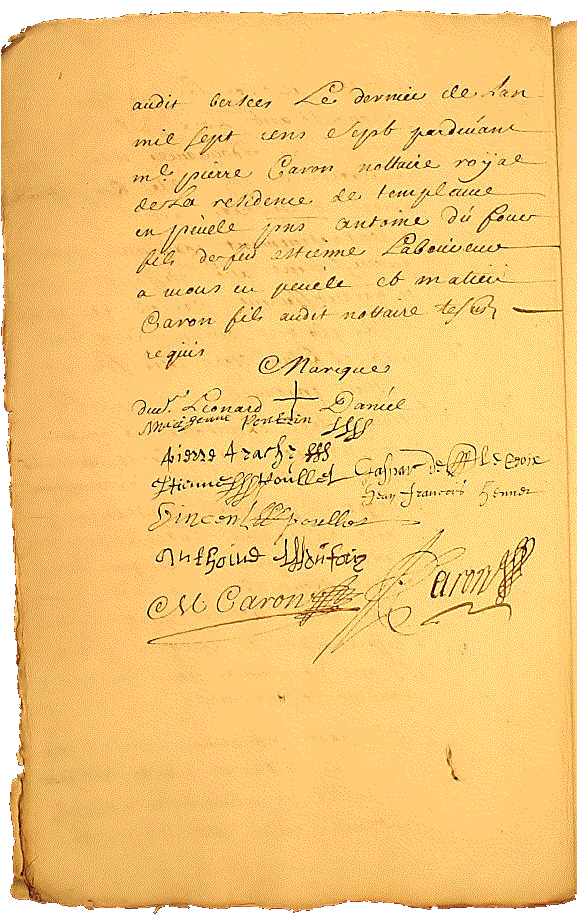 audit bersees Le dernier de Lan
mil sept cens sept pardevant
me. pierre Caron nottaire royal
de La residence de templeuve
en pevele pns antoine du four
fils de feu estienne Laboureur
a mons en pevele et matieu
Caron fils audit nottaire tesm
requis
Marque
dud. Léonard Daniel
pierre
Etienne poullet Gaspar de Le croix
Jean francois hennet
Vincent poullet
Anthoine dufour
M Caron P. Caron